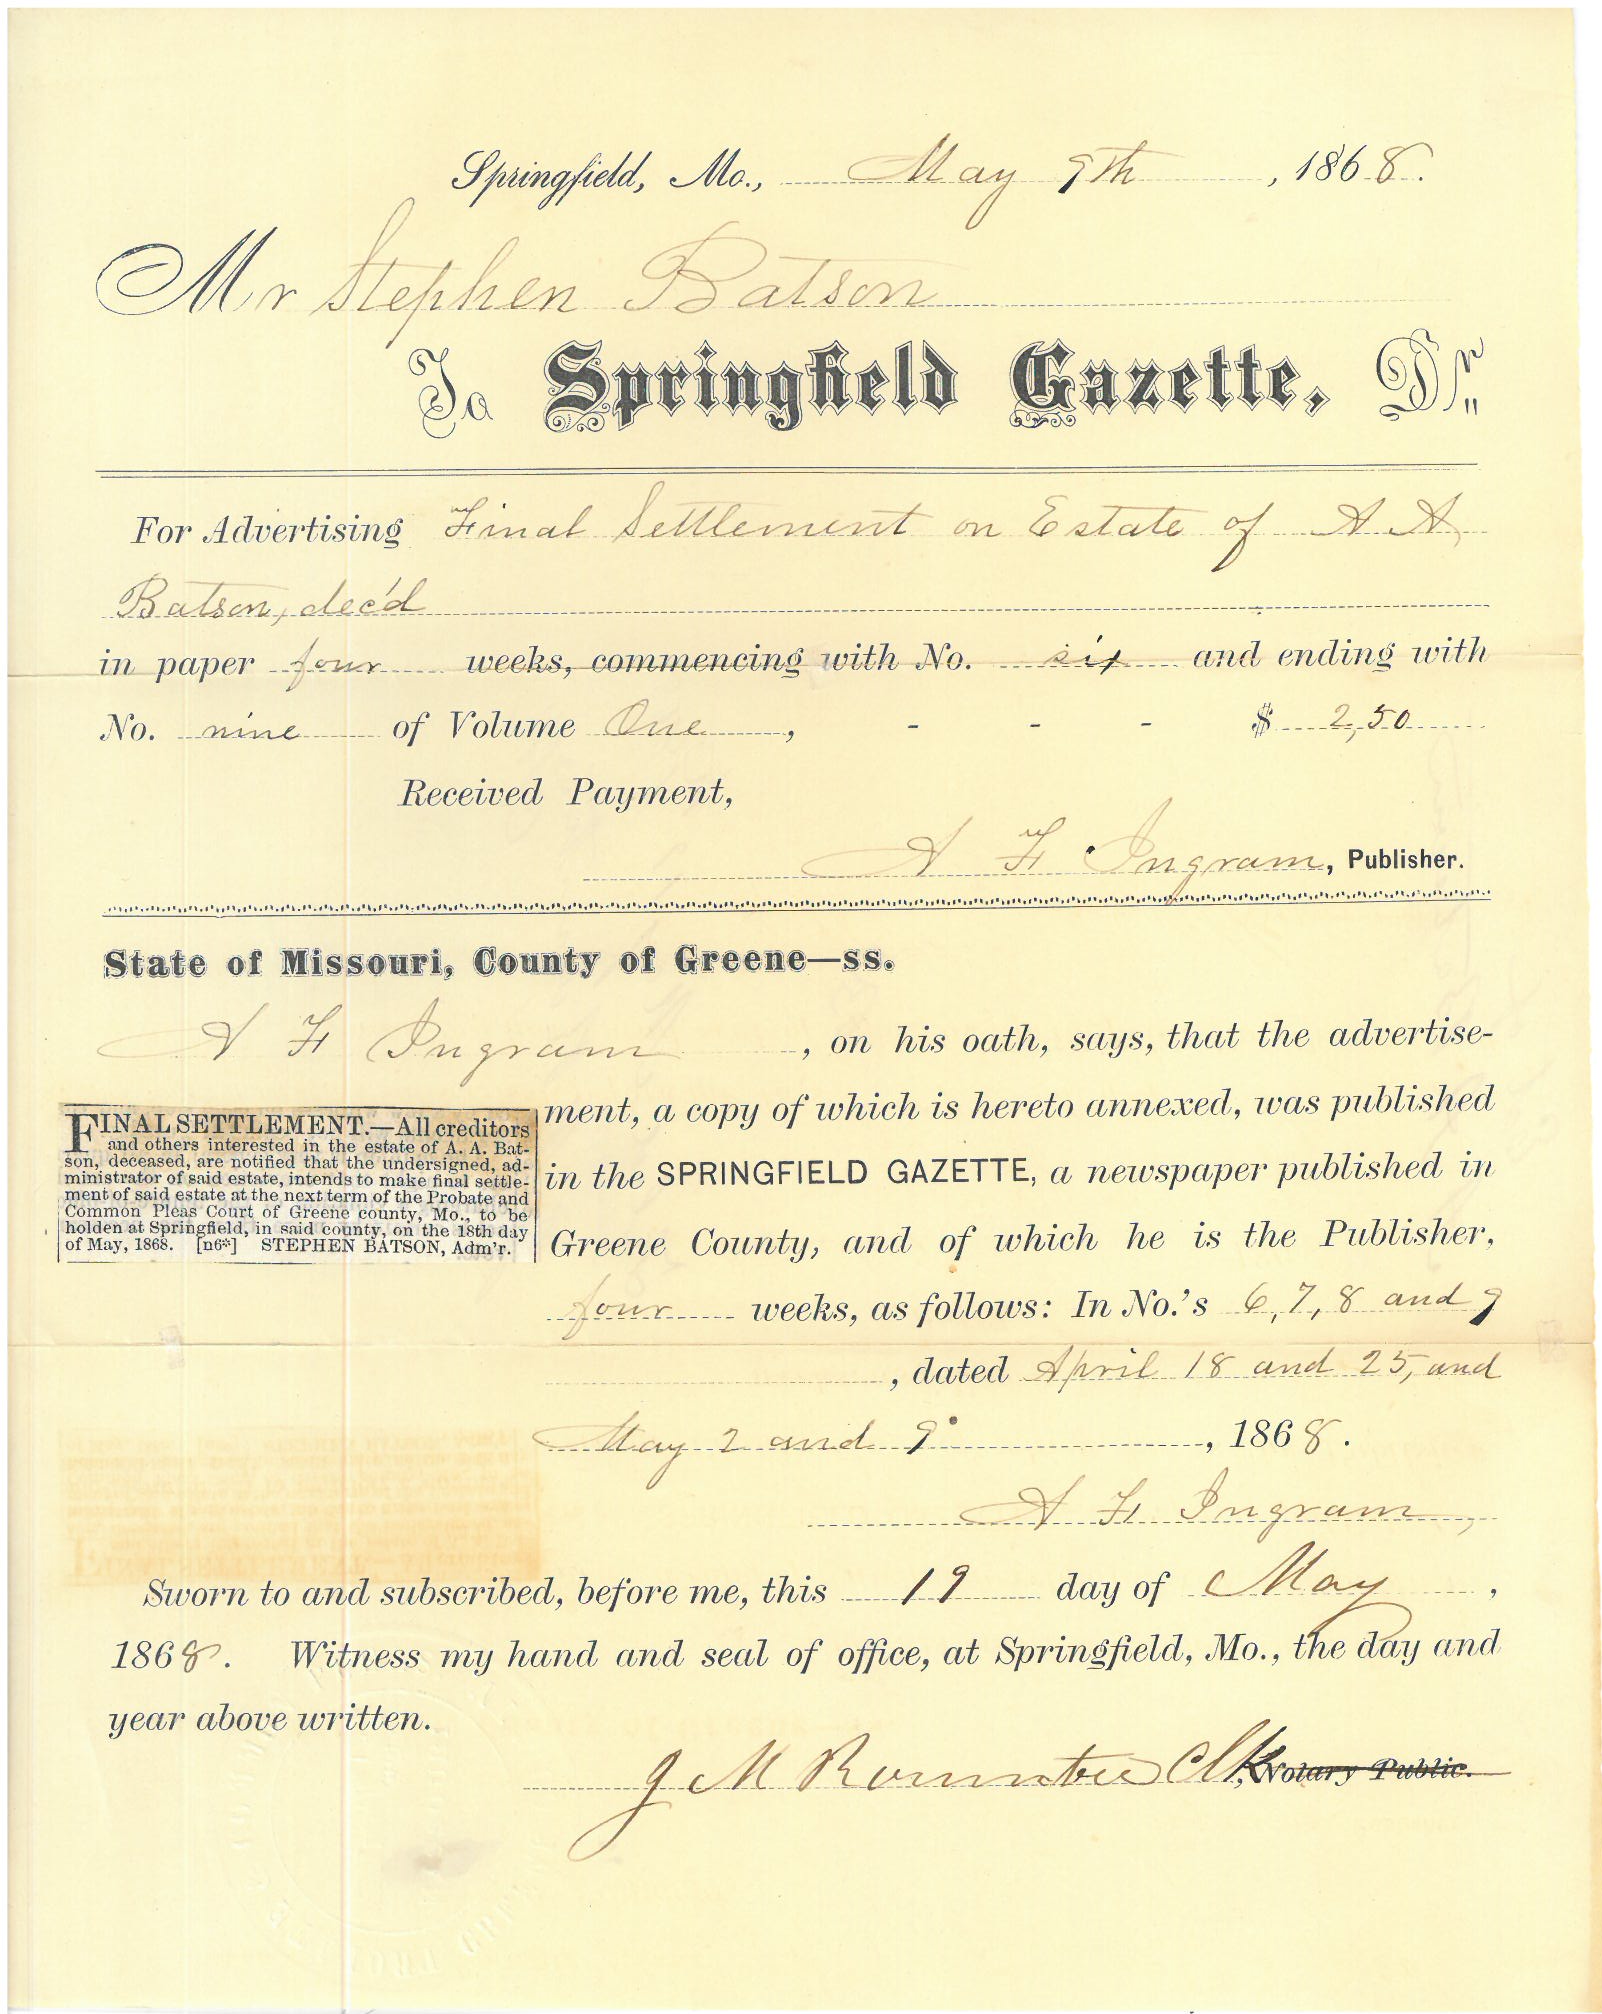 Springfield, Mo., May 9th, 1868.
Mr Stephen Batson
To Springfield Gazette, Dr.
For Advertising Final Settlement on Estate of A A
Batson, dec'd
in paper four weeks, commencing with No. six and ending with
No. nine of Volume One, - - - $ 2,50
Received Payment,
A F Ingram, Publisher.
State of Missouri, County of Greene—ss.
A F Ingram, on his oath, says, that the advertise-
ment, a copy of which is hereto annexed, was published
in the SPRINGFIELD GAZETTE, a newspaper published in
Greene County, and of which he is the Publisher,
four weeks, as follows: In No.'s 6, 7, 8 and 9
, dated April 18 and 25, and
May 2 and 9, 1868.
A F Ingram,
FINAL SETTLEMENT.—All creditors
and others interested in the estate of A. A. Bat-
son, deceased, are notified that the undersigned, ad-
ministrator of said estate, intends to make final settle-
ment of said estate at the next term of the Probate and
Common Pleas Court of Greene county, Mo., to be
holden at Springfield, in said county, on the 18th day
of May, 1868. [n6*] STEPHEN BATSON, Adm'r.
Sworn to and subscribed, before me, this 19 day of May,
1868. Witness my hand and seal of office, at Springfield, Mo., the day and
year above written.
J M Rountree Clk, Notary Public.